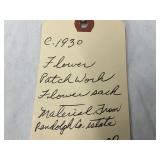 C. 1930
Flower
Patch Work
Flower sack
Material From
Randolph Co. estate